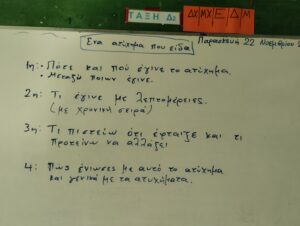 ΤΑΞΗ Δ2
ΔΧ ΜΧ Ε Δ Μ
Ένα ατύχημα που είδα
Παρασκευή 22 Νοεμβρίου
1η: • Πότε και πού έγινε το ατύχημα.
• Μεταξύ ποιων έγινε.
2η: Τι έγινε με λεπτομέρειες.
(με χρονική σειρά)
3η: Τι πιστεύω ότι έφταιξε και τι
προτείνω να αλλάξει
4: Πως ένιωσες με αυτό το ατύχημα
και γενικά με τα ατυχήματα.